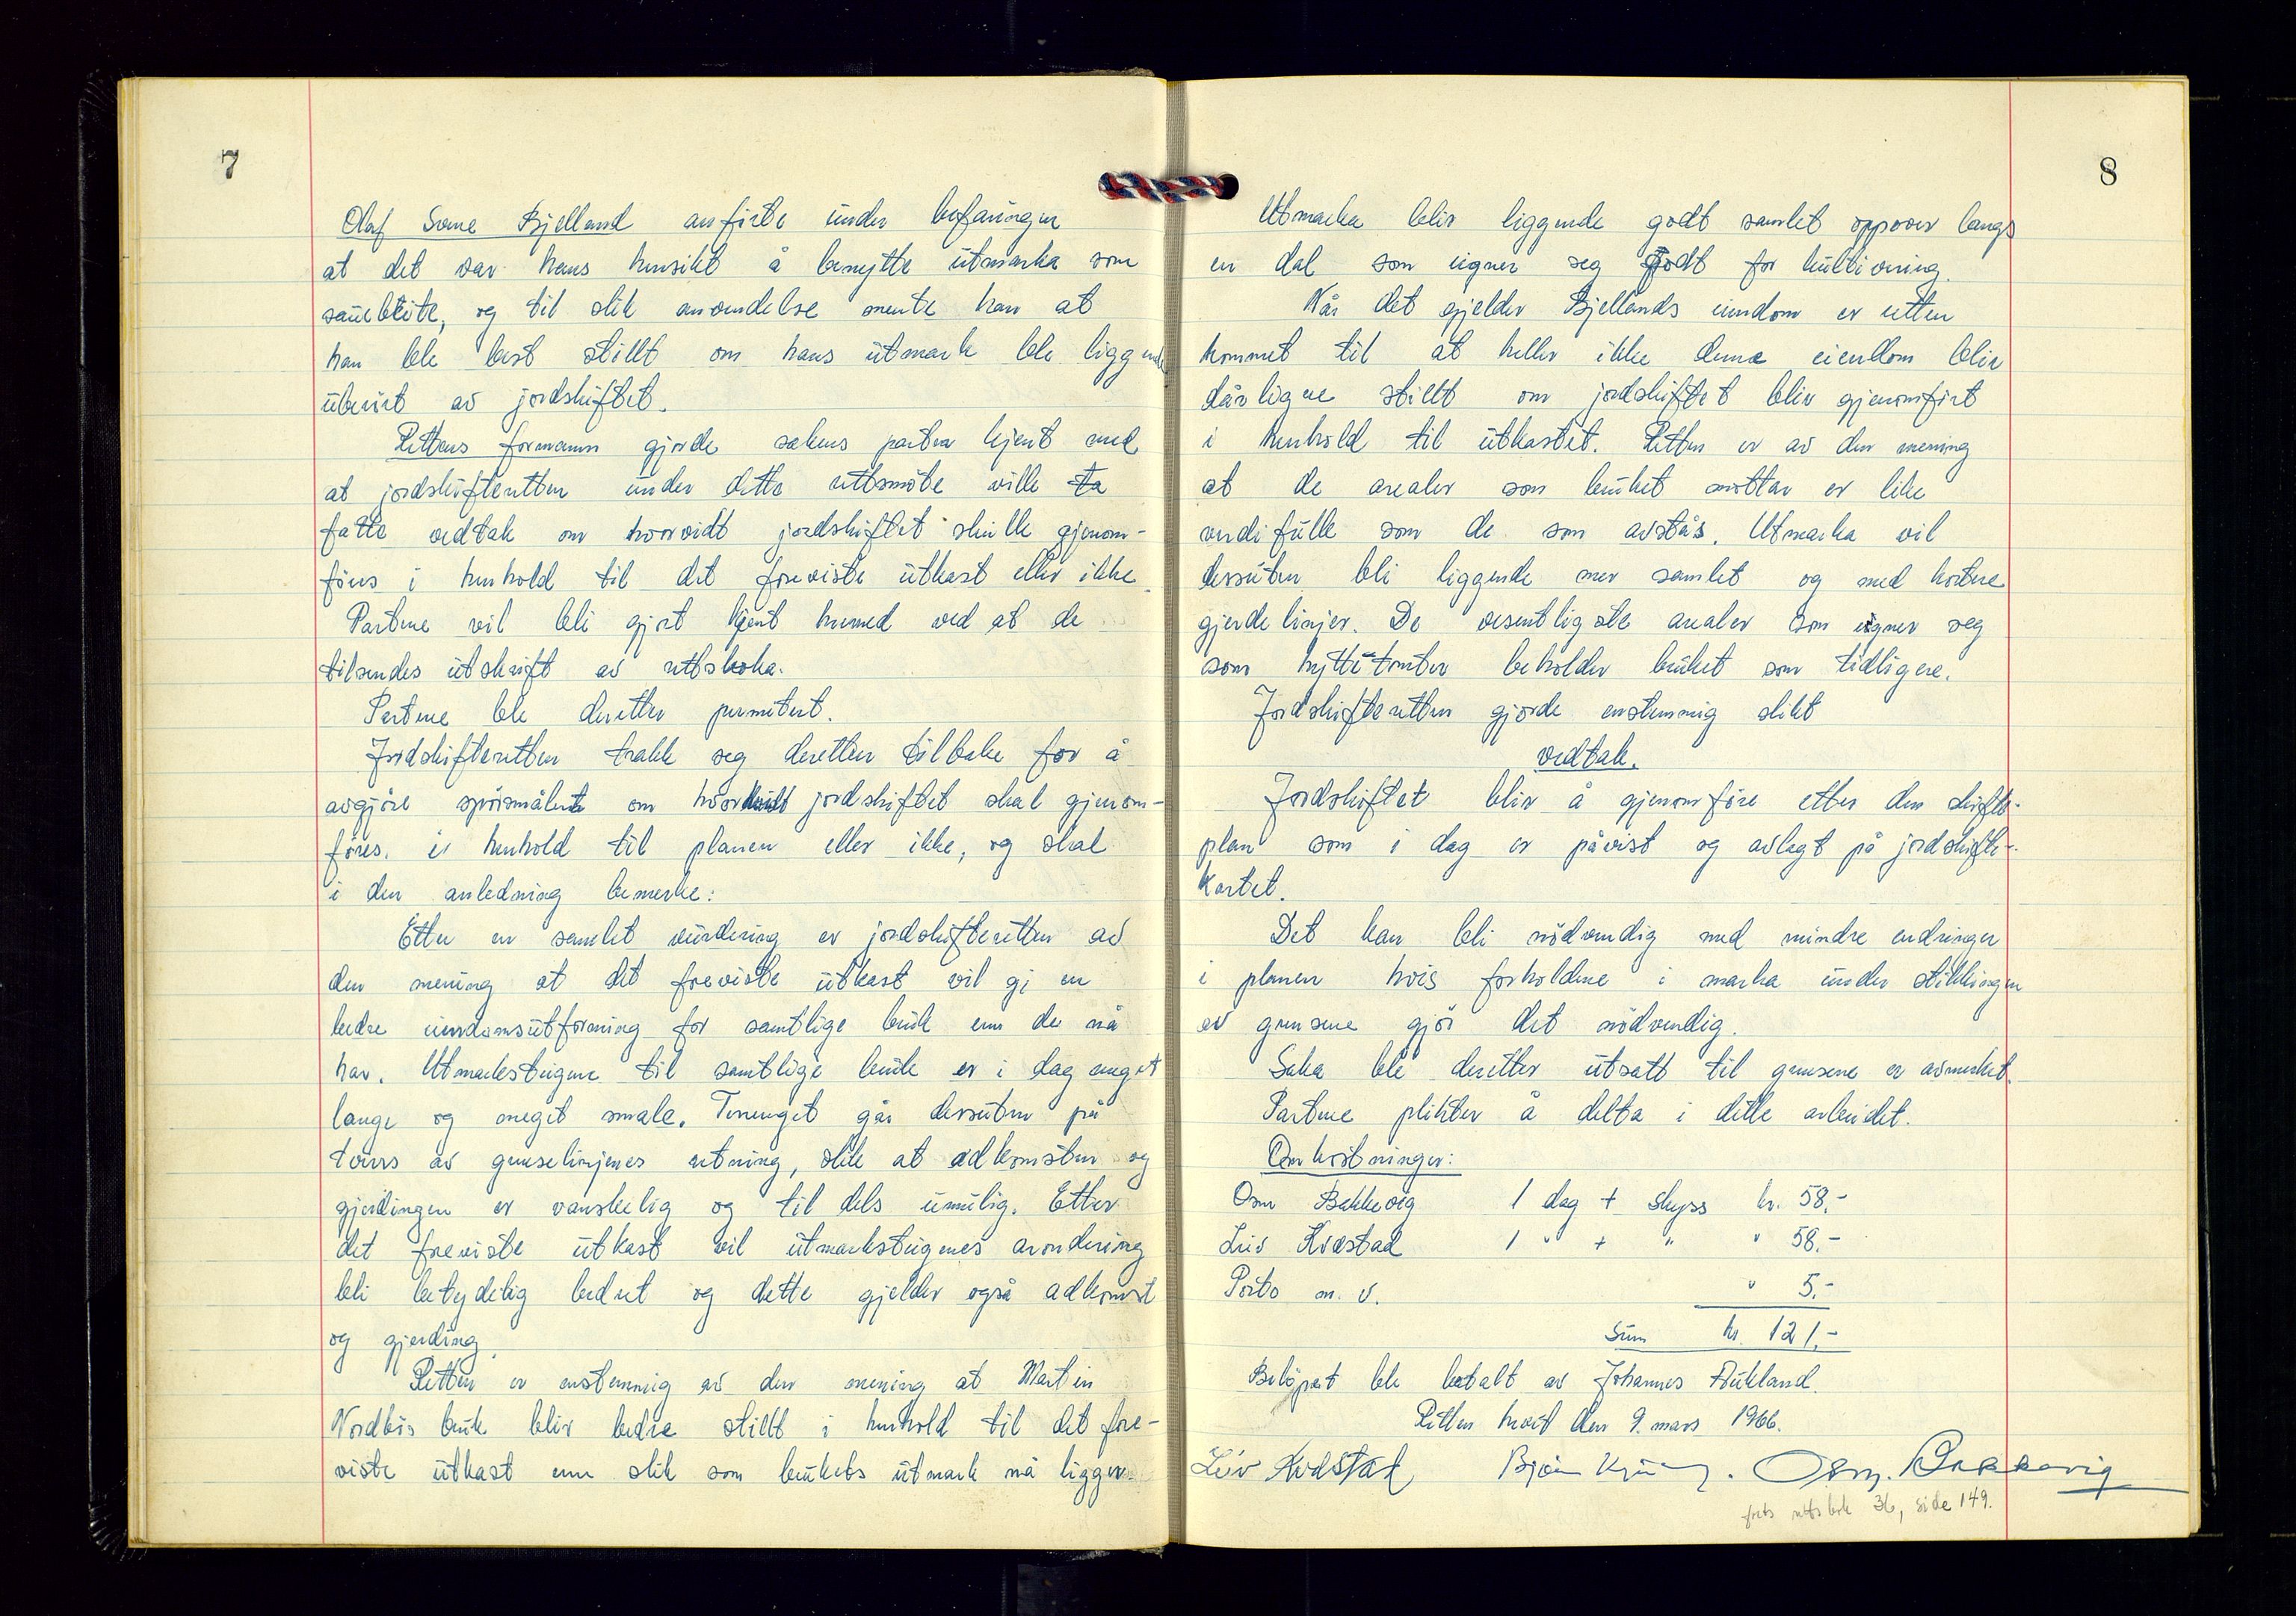 7
Olaf Some Bjelland anførte under befaringen
at det var hans hensikt å benytte utmarka som
sauebeite, og til slik anvendelse mente han at
han ble best stillt om hans utmark ble liggende
uberørt av jordskiftet.
Rettens formann gjorde sakens parter kjent med
at jordskifteretten under dette rettsmøte ville ta
fatte vedtak om hvorvidt jordskiftet skulle gjenom-
føres i henhold til det foreviste utkast eller ikke.
Partene vil bli gjort kjent hermed ved at de
tilsendes utskrift av rettsboka.
Partene ble deretter permitert.
Jordskifteretten trakk seg deretter tilbake for å
avgjøre spørsmålet om hvorvidt jordskiftet skal gjenom-
føres i henhold til planen eller ikke, og skal
i den anledning bemerke:
Etter en samlet vurdering er jordskifteretten av
den mening at det foreviste utkast vil gi en
bedre eiendomsutforming for samtlige bruk enn de nå
har. Utmarksteigene til samtlige bruk er i dag meget
lange og meget smale. Terrenget går dessuten på
tvers av grenselinjenes retning, slik at adkomsten og
gjerdingen er vanskelig og til dels umulig. Etter
det foreviste utkast vil utmarksteigenes arondering
bli betydelig bedret og dette gjelder også adkomst
og gjerding.
Retten er enstemmig av den mening at Martin
Nordbøs bruk blir bedre stillt i henhold til det fore-
viste utkast enn slik som brukets utmark nå ligger.
8
Utmarka blir liggende godt samlet oppover langs
en dal som eigner seg godt for kultivering.
Når det gjelder Bjellands eiendom er retten
kommet til at heller ikke denne eiendom blir
dårligere stillt om jordskiftet blir gjenomført
i henhold til utkastet. Retten er av den mening
at de arealer som bruket mottar er like
verdifulle som de som avstås. Utmarka vil
dessuten bli liggende mer samlet og med kortere
gjerdelinjer. De vesentligste arealer som eigner seg
som hyttetomter beholder bruket som tidligere.
Jordskifteretten gjorde enstemmig slikt
vedtak.
Jordskiftet blir å gjenomføre etter den skifte-
plan som i dag er påvist og avlagt på jordskifte-
kartet.
Det kan bli nødvendig med mindre endringer
i planen hvis forholdene i marka under stikkingen
av grensene gjør det nødvendig.
Saka ble deretter utsatt til grensene er avmerket.
Partene plikter å delta i dette arbeidet.
Omkostninger:
Osm Bakkevig 1 dag + skyss kr. 58,-
Leiv Kvastad 1 " + " " 58.-
Porto m. v. " 5.-
Sum kr. 121,-
Beløpet ble betalt av Johannes Aukland.
Retten hevet den 9. mars 1966.
Leiv Kvastad Bjørn Osm. Bakkevig
forts rettsbok 36, side 149.